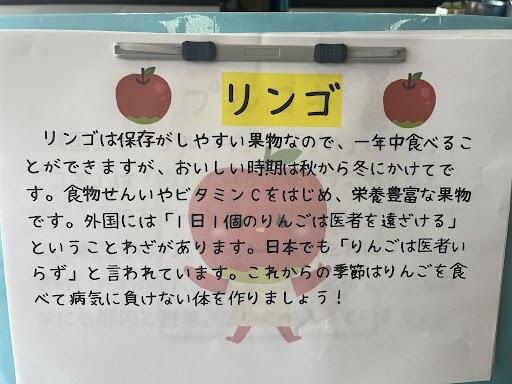 リンゴ
リンゴは保存がしやすい果物なので、一年中食べるこ
とができますが、おいしい時期は秋から冬にかけてで
す。食物せんいやビタミンCをはじめ、栄養豊富な果物
です。外国には「1日1個のりんごは医者を遠ざける」
ということわざがあります。日本でも「りんごは医者い
らず」と言われています。これからの季節はりんごを食
べて病気に負けない体を作りましょう！